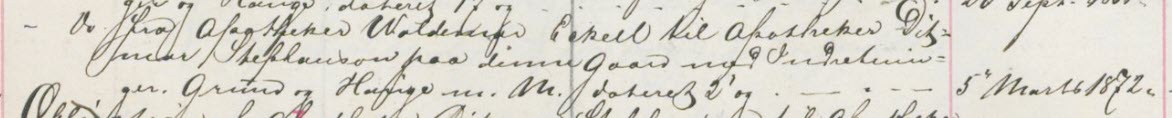 ger og Hauge, dateret 17 og
Do. fra Apotheker Woldemar Eckell til Apotheker Dit=
mar Stephanson paa denne Gaard med Indretnin=
ger, Grund og Hauge m. M. dateret 2' og . — . — 5" Marts 1872.